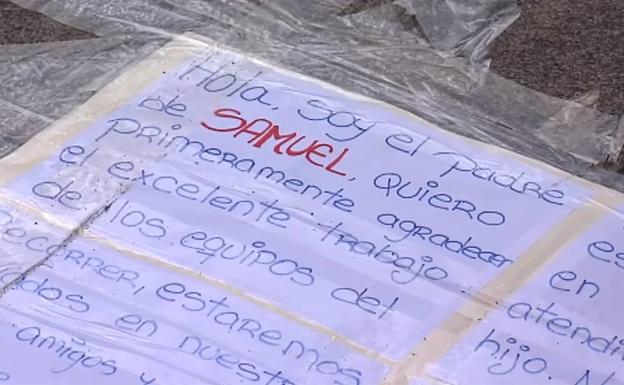 Hola, soy el padre
de SAMUEL, quiero
primeramente agradecer
el excelente trabajo
de los equipos del
recorrer, estaremos
en nuest
amigos y
en
atendi
hijo.